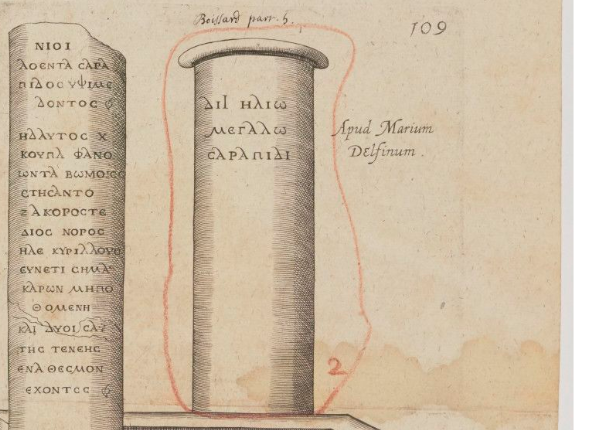 Boissard part. 5.
109
ΝΙΟΙ
ΛΟΕΝΤΑ ϹΑΡΑ
ΠΙΔΟϹ ΥΨΙΜΕ
ΔΟΝΤΟϹ
ΗΔΑΥΤΟϹ Χ
ΚΟΥΠΑ ΦΑΝΟ
ΙΩΝΤΑ ΒΩΜΟΙϹ
ϹΤΗϹΑΝΤΟ
ΖΑΚΟΡΟϹΤΕ
ΔΙΟϹ ΝΟΡΟϹ
ΗΔΕ ΚΥΡΙΛΛΟΥ
ΕΥΝΕΤΙ ϹΗΜΑ
ΚΑΡΩΝ ΜΗΠΟ
ΘΟΜΕΝΗ
ΚΑΙ ΔΥΟΙ ϹΑΥ
ΤΗϹ ΤΕΝΕΗϹ
ΕΝΑ ΘΕϹΜΟΝ
ΕΧΟΝΤϹϹ
ΔΙΙ ΗΛΙΩ
ΜΕΓΑΛΩ
ϹΑΡΑΠΙΔΙ
Apud Marium
Delfinum.
2